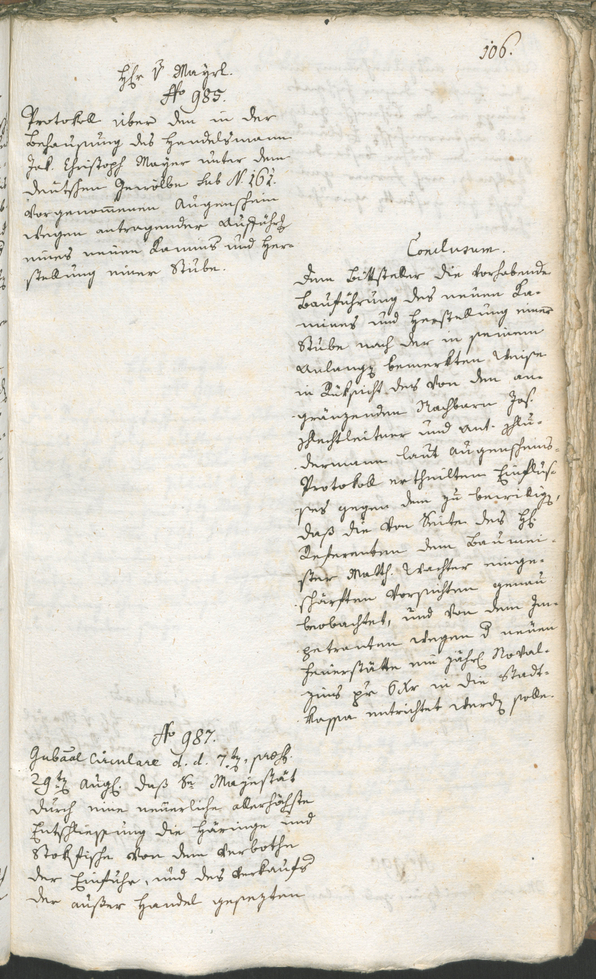 106.
Hr v Mayrl.
No 985.
Protokoll über den in der
Behausung des Handelsmann
Jak. Christoph Mayer unter dem
deutschen Gewölbe sub N 161.
vorgenommenen Augenschein
wegen antragender Ausführg
eines neuen Kamins und Her-
stellung einer Stube.
Conclusum.
Dem Bittsteller die vorhabende
Bauführung des neuen Ka-
mines und Herstellung einer
Stube nach der in seinem
Anlangen bemerkten Weise
in Rüksicht des von den an-
gränzenden Nachbarn Jos.
Schlechtleitner und Ant.
dermann laut Augenscheins-
Protokoll ertheilten Einflus-
ses gegen dem zu bewillig,
daß die von Seite des H.
Referenten dem Baumei-
ster Math. Wachter einge-
schärften Vorsichten genau
beobachtet, und von dem Im-
petranten wegen d neuen
Feuerstätte ein jährl. Noval-
zins pr 6 xr in die Stadt-
kassa entrichtet werden solle.
No 987.
Gubernal Circulare d. d. 7t, præs.
29t Augl. daß Se Majestät
durch eine neuerliche allerhöchste
Entschliessung die Häringe und
Stokfische von dem Verbothe
der Einfuhr, und des Verkaufs
der außer Handel gesezten